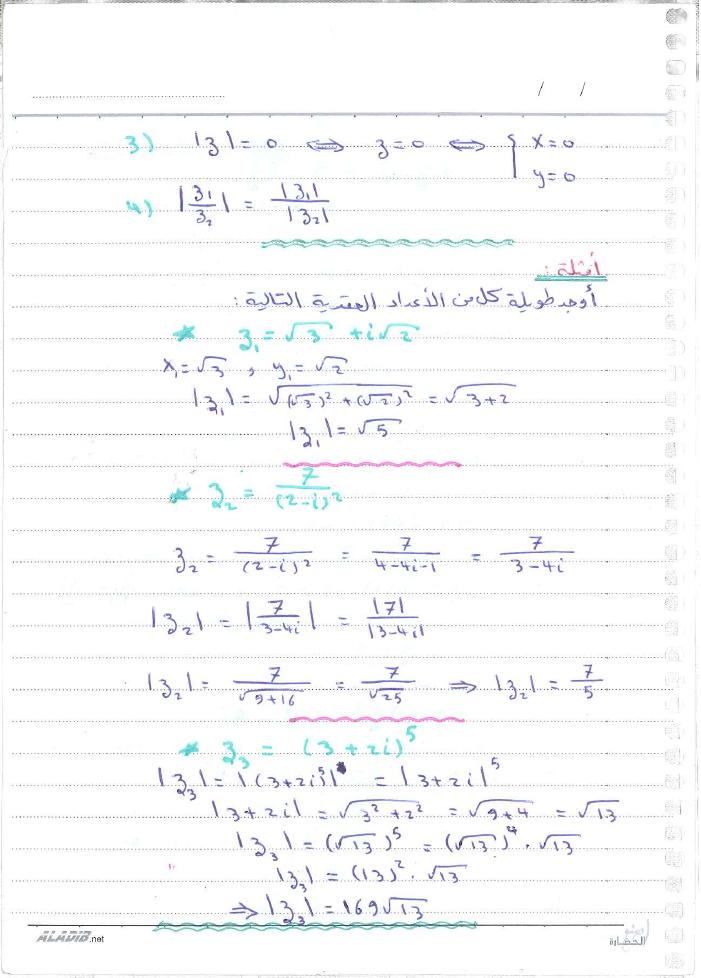 / /
3) |z| = 0 ⟺ z = 0 ⟺ { x = 0
y = 0
4) |z₁/z₂| = |z₁|/|z₂|
أمثلة :
أوجد طويلة كل من الأعداد العقدية التالية :
* z₁ = √3 + i√2
x₁ = √3 , y₁ = √2
|z₁| = √((√3)² + (√2)²) = √(3+2)
|z₁| = √5
* z₂ = 7/(2-i)²
z₂ = 7/(2-i)² = 7/(4-4i-1) = 7/(3-4i)
|z₂| = |7/(3-4i)| = |7|/|3-4i|
|z₂| = 7/√(9+16) = 7/√25 ⟹ |z₂| = 7/5
* z₃ = (3+2i)⁵
|z₃| = |(3+2i)⁵| = |3+2i|⁵
|3+2i| = √(3²+2²) = √(9+4) = √13
|z₃| = (√13)⁵ = (√13)⁴ · √13
|z₃| = (13)² · √13
⟹ |z₃| = 169√13
ALADIB.net
الحضارة